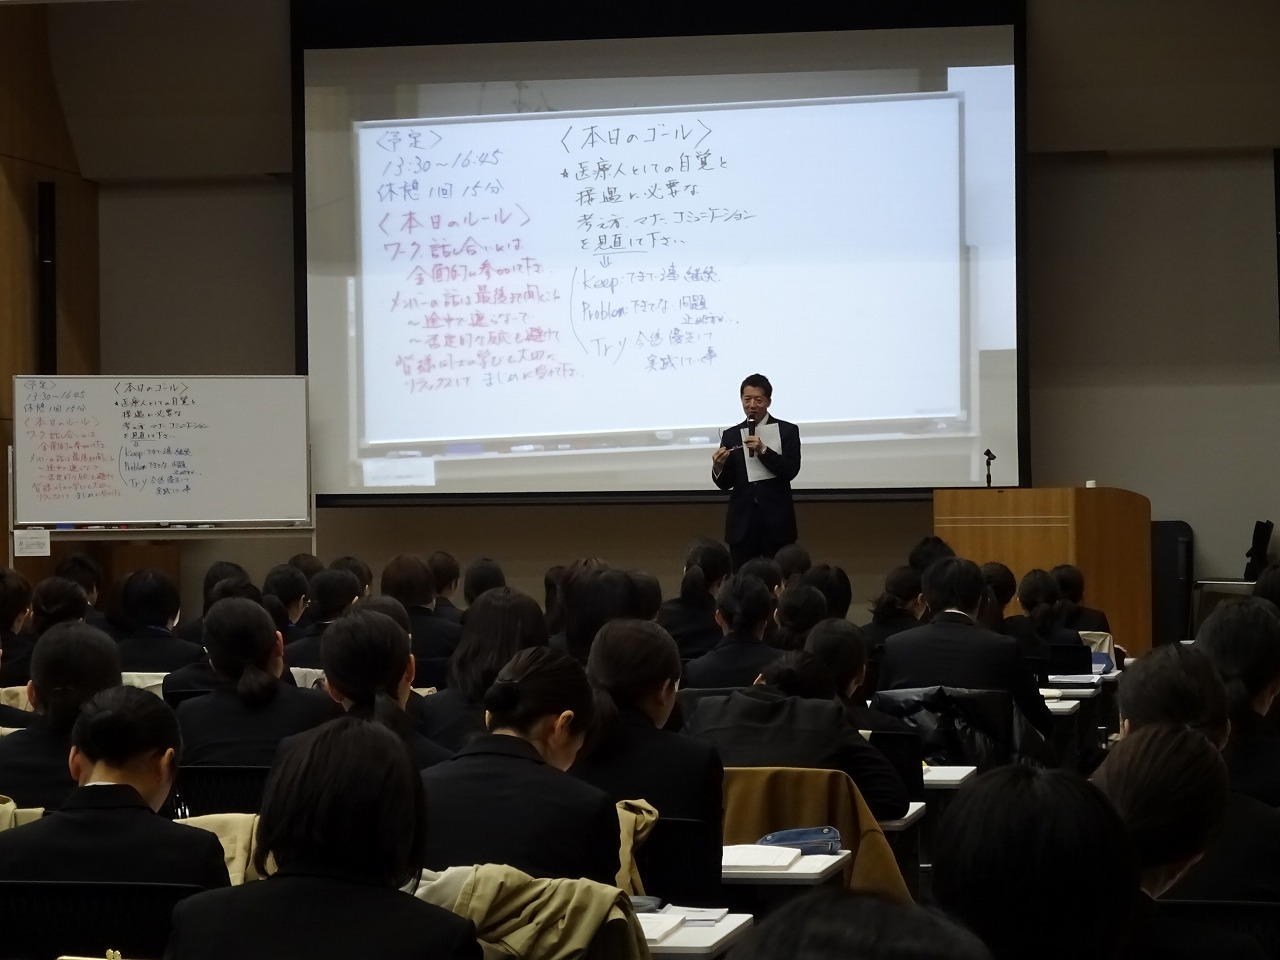 〈予定〉
13:30〜16:45
休憩1回 15分
〈本日のルール〉
ワーク、話し合いには
全面的に参加して下さい
メンバーの話は最後まで聞くこと
〜途中で遮らないで
〜否定的な反応も避けて
皆様同士の学びも大切に
リラックスして まじめに受けて下さい
〈本日のゴール〉
★医療人としての自覚と
接遇に必要な
考え方、マナー、コミュニケーション
を見直して下さい
⇓
Keep:できて 継続
Problem:できてない 問題
Try 今後優先して
実践して 事
〈予定〉
13:30〜16:45
休憩1回 15分
〈本日のルール〉
ワーク、話し合いには
全面的に参加して下さい
メンバーの話は最後まで聞くこと
〜途中で遮らないで
〜否定的な反応も避けて
皆様同士の学びも大切に
リラックスして まじめに受けて下さい
〈本日のゴール〉
★医療人としての自覚と
接遇に必要な
考え方、マナー、コミュニケーション
を見直して下さい
⇓
Keep:できて 継続
Problem:できてない 問題
Try 今後優先して
実践して 事